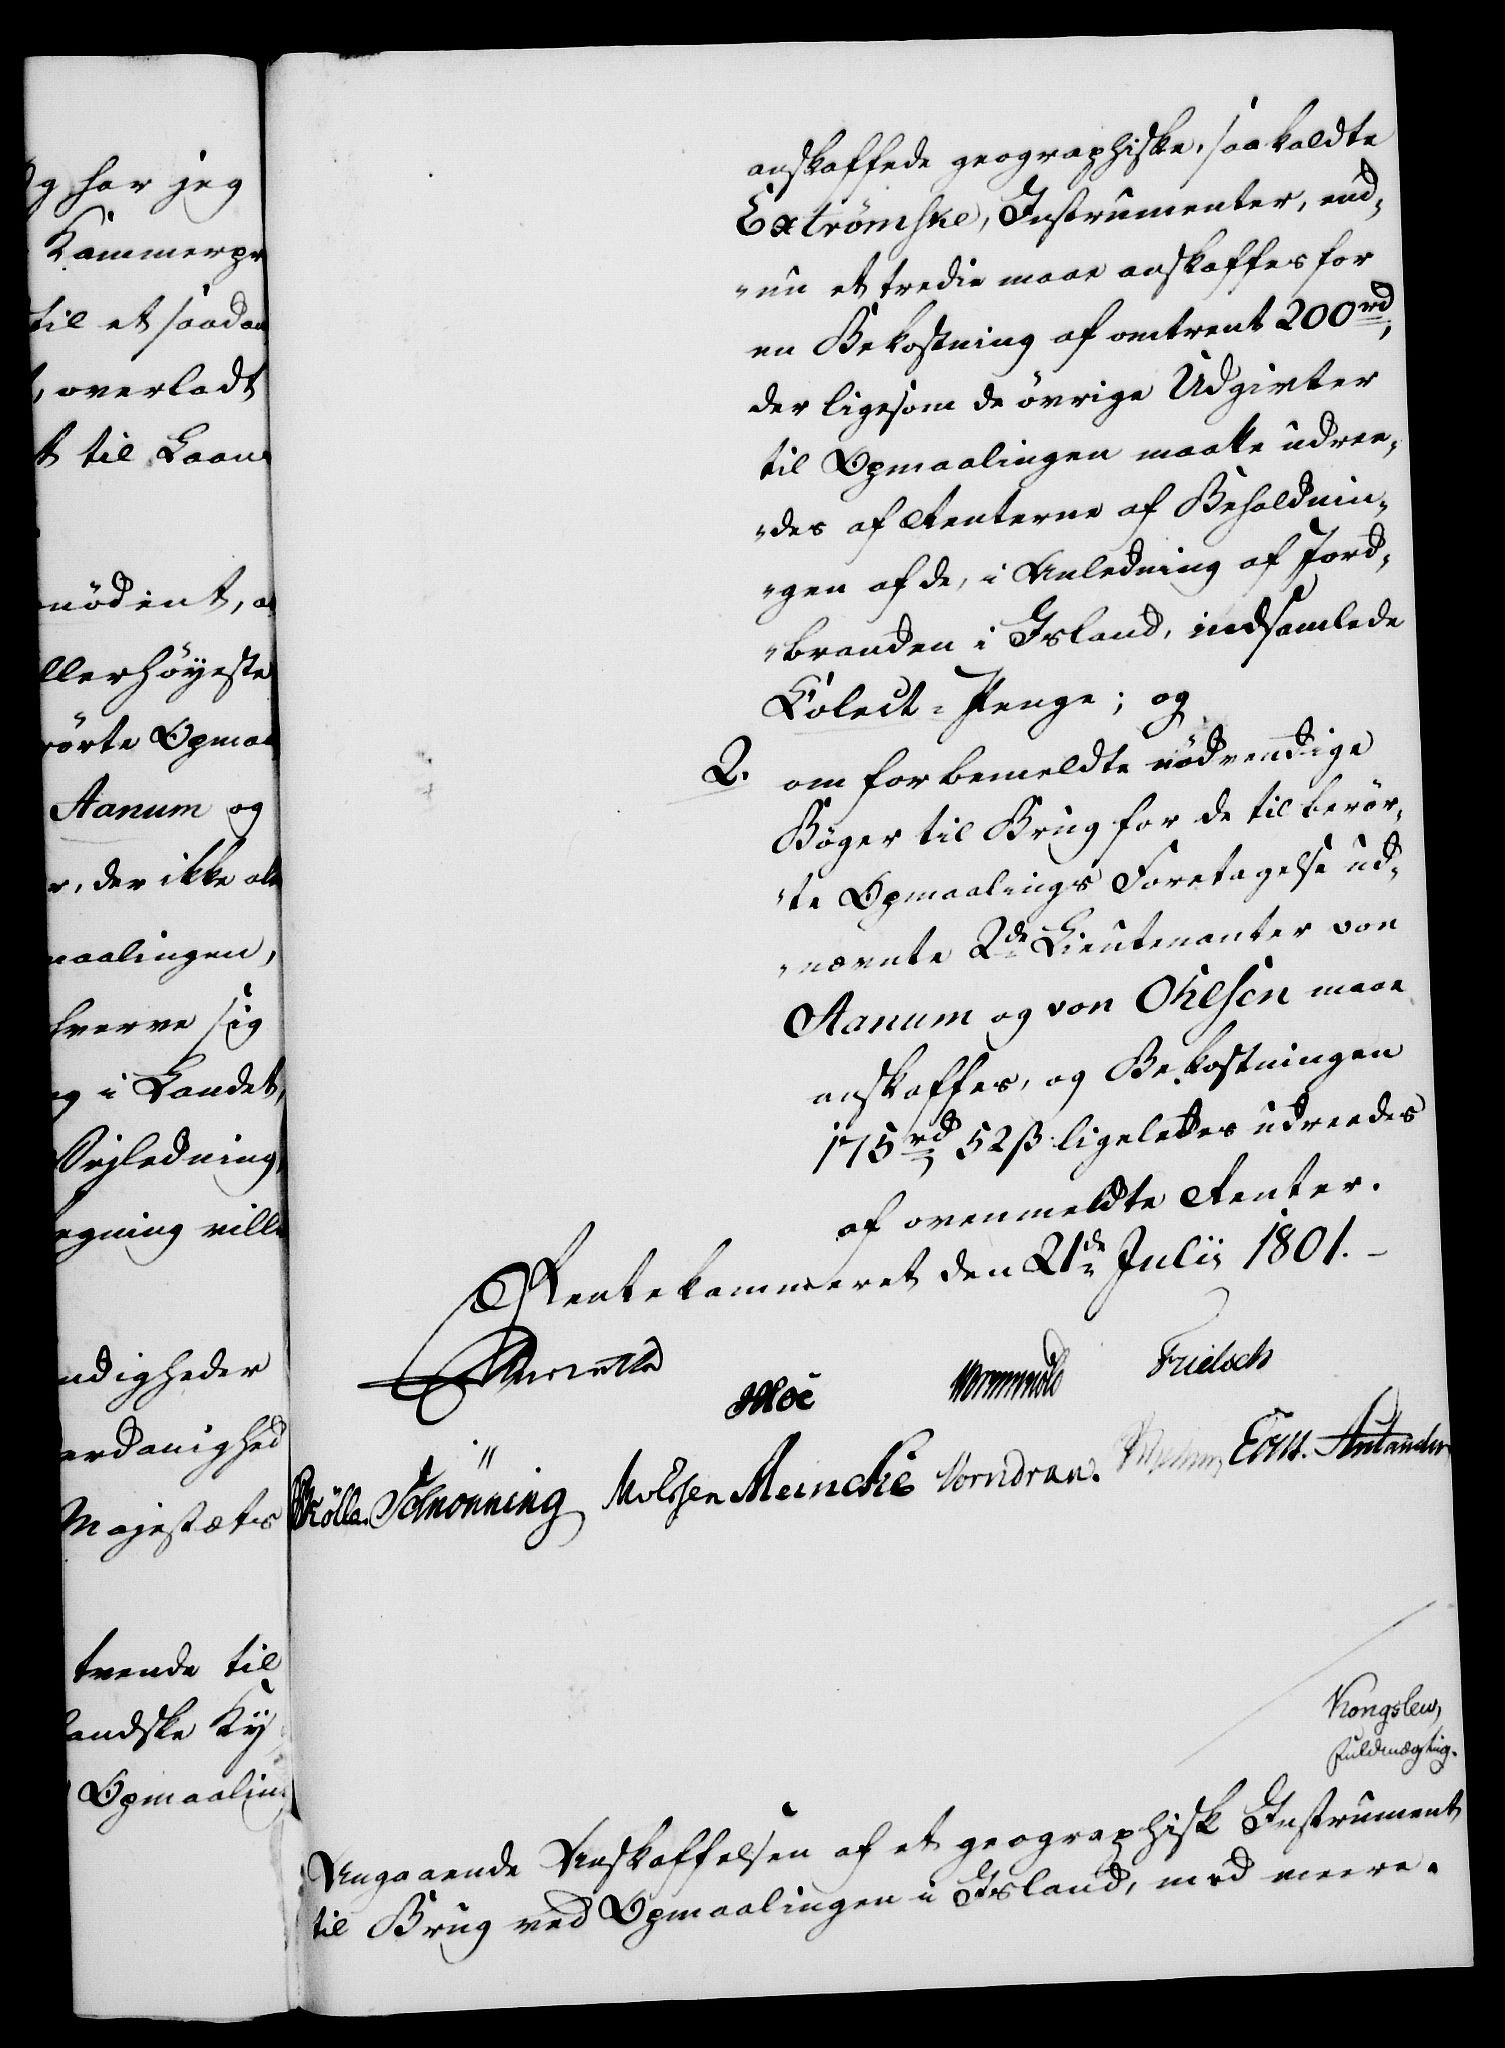 g har jeg
Kammerpr
til et saadan
, overladt
t til Laans
nödent, a
llerhöyeste
rörte Opmaa
Aanum og
r, der ikke al
maalingen,
hverve sig
g i Landet,
Vejledning
egning vill
ndigheder
erdanighed
Majestæts
tvende til
landske Ky
Opmaalin
anskaffede geographiske, saa kaldte
Extrömske, Instrumenter, end„
„nu et tredie maae anskaffes for
en Bekostning af omtrent 200 rd,
der ligesom de övrige Udgivter
til Opmaalingen maatte udree„
„des af Renterne af Beholdnin„
„gen af de, i Anledning af Jord„
„branden i Island, indsamlede
Colect-Penge; og
2. om forbemeldte nödvendige
Böger til Brug for de til berör„
„te Opmaalings Foretagelse ud„
„nævnte 2de Lieutenanter von
Aanum og von Ohlsen maae
anskaffes, og Bekostningen
175 rd 52 ß ligeledes udreedes
af ovenmeldte Renter.
Rentekammeret den 21de Julii 1801.
Schönning Meincke Vorndran.
Kongslew,
Fuldmægtig.
Angaaende Anskaffelsen af et geographisk Instrument
til Brug ved Opmaalingen i Island, med meere.